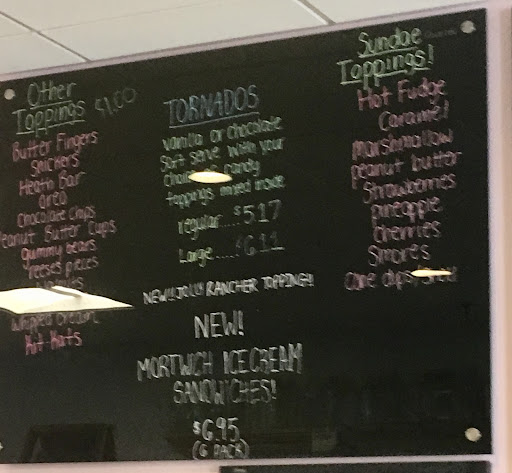 Other
Toppings $1.00
Butter Fingers
Snickers
Heath Bar
oreo
Chocolate chips
Peanut Butter Cups
gummy bears
reeses pieces
whipped cream
Kit Kats
TORNADOS
vanilla or chocolate
Soft serve with your
candy
toppings mixed inside
regular....$5.17
Large....$6.11
NEW!! JOLLY RANCHER TOPPING!!
NEW!
MORTWICH ICECREAM
SANDWICHES!
$6.95
(6 PACK)
Sundae
Toppings!
Hot Fudge
Caramel
Marshmallow
peanut butter
Strawberries
pineapple
cherries
Smores
Cone dips/